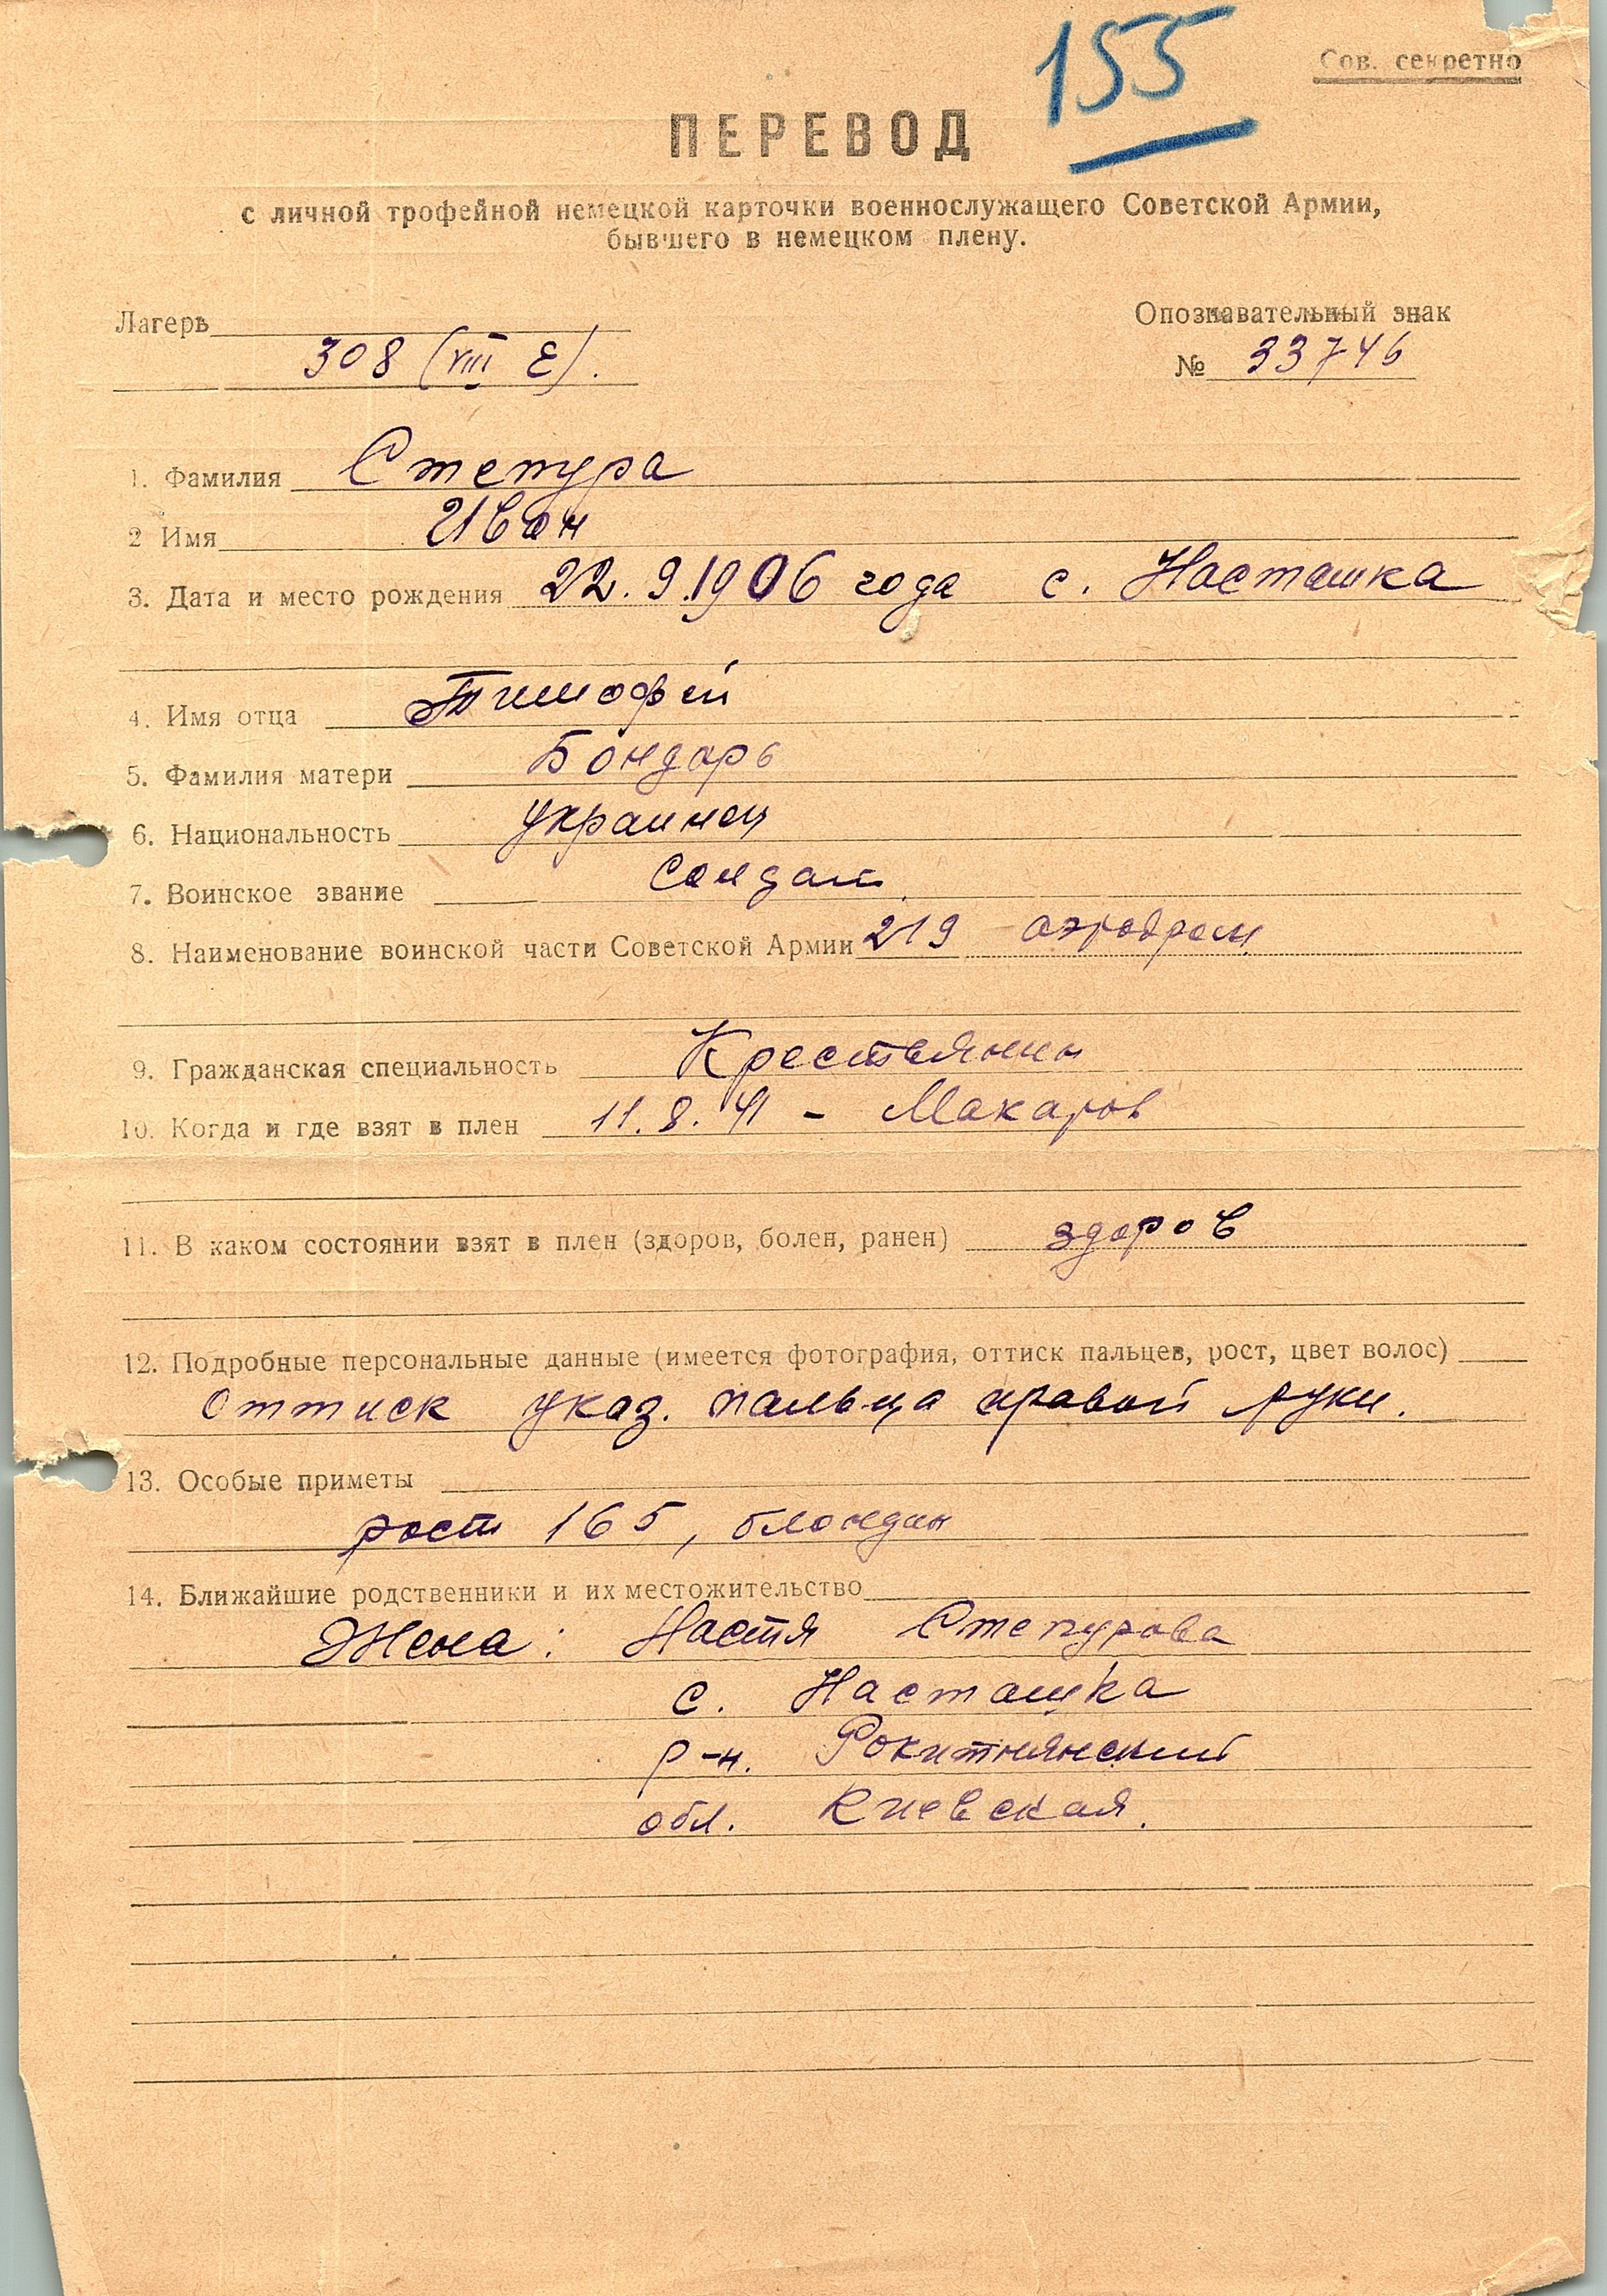 155
Сов. секретно
ПЕРЕВОД
с личной трофейной немецкой карточки военнослужащего Советской Армии,
бывшего в немецком плену.
Лагерь
Опознавательный знак
308 (VIII E).
№ 33746
1. Фамилия Степура
2 Имя Иван
3. Дата и место рождения 22.9.1906 года с. Насташка
4. Имя отца Тимофей
5. Фамилия матери Бондарь
6. Национальность украинец
7. Воинское звание Солдат
8. Наименование воинской части Советской Армии 219 аэродром
9. Гражданская специальность Крестьянин
10. Когда и где взят в плен 11.8.41 - Макаров
11. В каком состоянии взят в плен (здоров, болен, ранен) здоров
12. Подробные персональные данные (имеется фотография, оттиск пальцев, рост, цвет волос)
Оттиск указ. пальца правой руки.
13. Особые приметы
рост 165, блондин
14. Ближайшие родственники и их местожительство
Жена: Настя Степурова
с. Насташка
р-н. Рокитнянский
обл. Киевская.